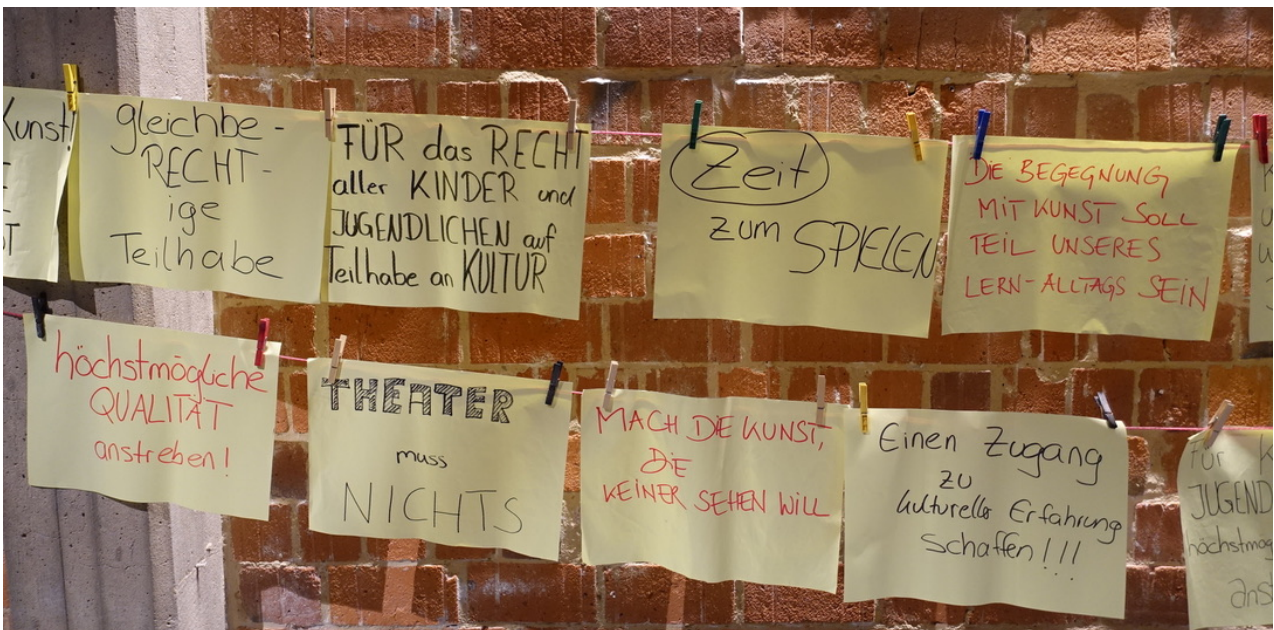 Kunst!
gleichbe-
RECHT-
ige
Teilhabe
FÜR das RECHT
aller KINDER und
JUGENDLICHEN auf
Teilhabe an KULTUR
Zeit
zum SPIELEN
DIE BEGEGNUNG
MIT KUNST SOLL
TEIL UNSERES
LERN-ALLTAGS SEIN
höchstmögliche
QUALITÄT
anstreben!
THEATER
muss
NICHTS
MACH DIE KUNST,
DIE
KEINER SEHEN WILL
Einen Zugang
zu
kultureller Erfahrung
schaffen!!!
Für K
JUGEND
höchstmög
anst